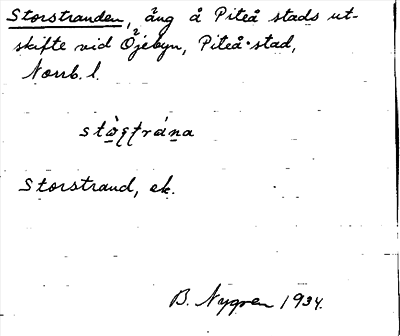 Storstranden, äng å Piteå stads ut-
skifte vid Öjebyn, Piteå stad,
Norrb. l.
Storstrand, ek.
B. Nygren 1934.